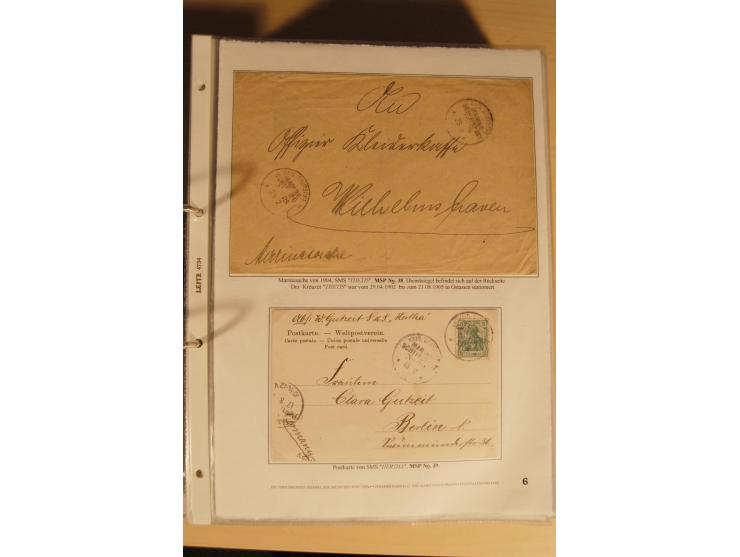 An
Offizier Kleiderkasse
Wilhelmshaven
Marinesache
Marinesache von 1904, SMS "THETIS", MSP Ng. 38. Dienstsiegel befindet sich auf der Rückseite
Der Kreuzer "THETIS" war vom 29.04.1902 bis zum 21.08.1905 in Ostasien stationiert.
LEITZ 4734
Abs: W. Gutzeit S.M.S. „Hertha"
Postkarte. — Weltpostverein.
Carte postale. — Union postale universelle.
Post card.
Fräulein
Clara Gutzeit
Berlin N.
Swinemünder Str.
Germany
Postkarte von SMS "HERTHA", MSP Ng. 39.
6